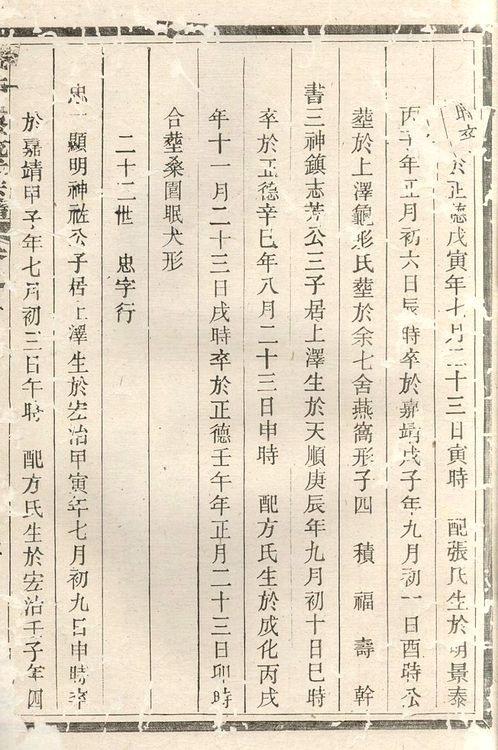 於正德戊寅年七月二十三日寅時 配張氏生於明景泰
丙子年正月初六日辰時卒於嘉靖戊子年九月初一日酉時公
塟於上澤龜形氏塟於余七舍燕窩形子四 積 福 壽 幹
書三神鎮志芳公三子居上澤生於天順庚辰年九月初十日巳時
卒於正德辛巳年八月二十三日申時 配方氏生於成化丙戌
年十一月二十三日戌時卒於正德壬午年正月二十三日卯時
合塟桑園眠犬形
二十二世 忠字行
忠一顯明神祐公子居上澤生於宏治甲寅年七月初九日申時卒
於嘉靖甲子年七月初三日午時 配方氏生於宏治壬子年四